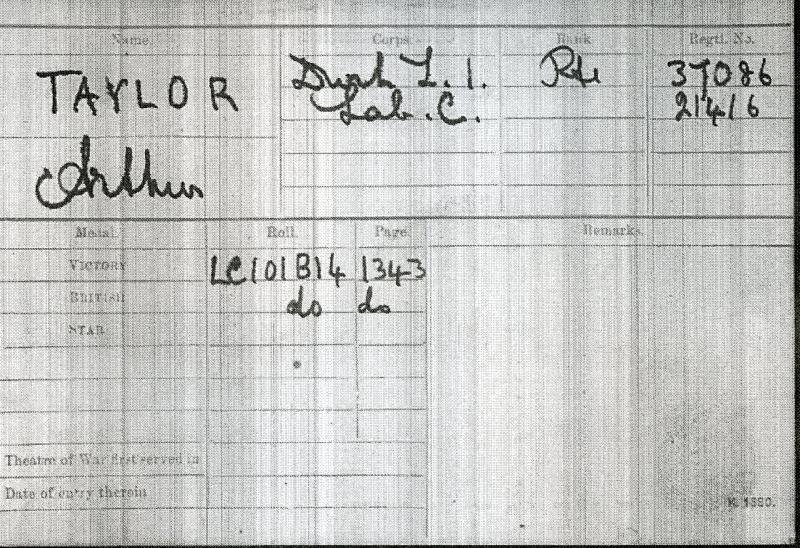 Name. Corps. Rank Regtl. No.
TAYLOR Durh L.I. Pte 37086
Lab. C. 21416
Arthur
Medal. Roll. Page. Remarks.
VICTORY LC101B14 1343
BRITISH do do
STAR
Theatre of War first served in
Date of entry therein
K. 1380.